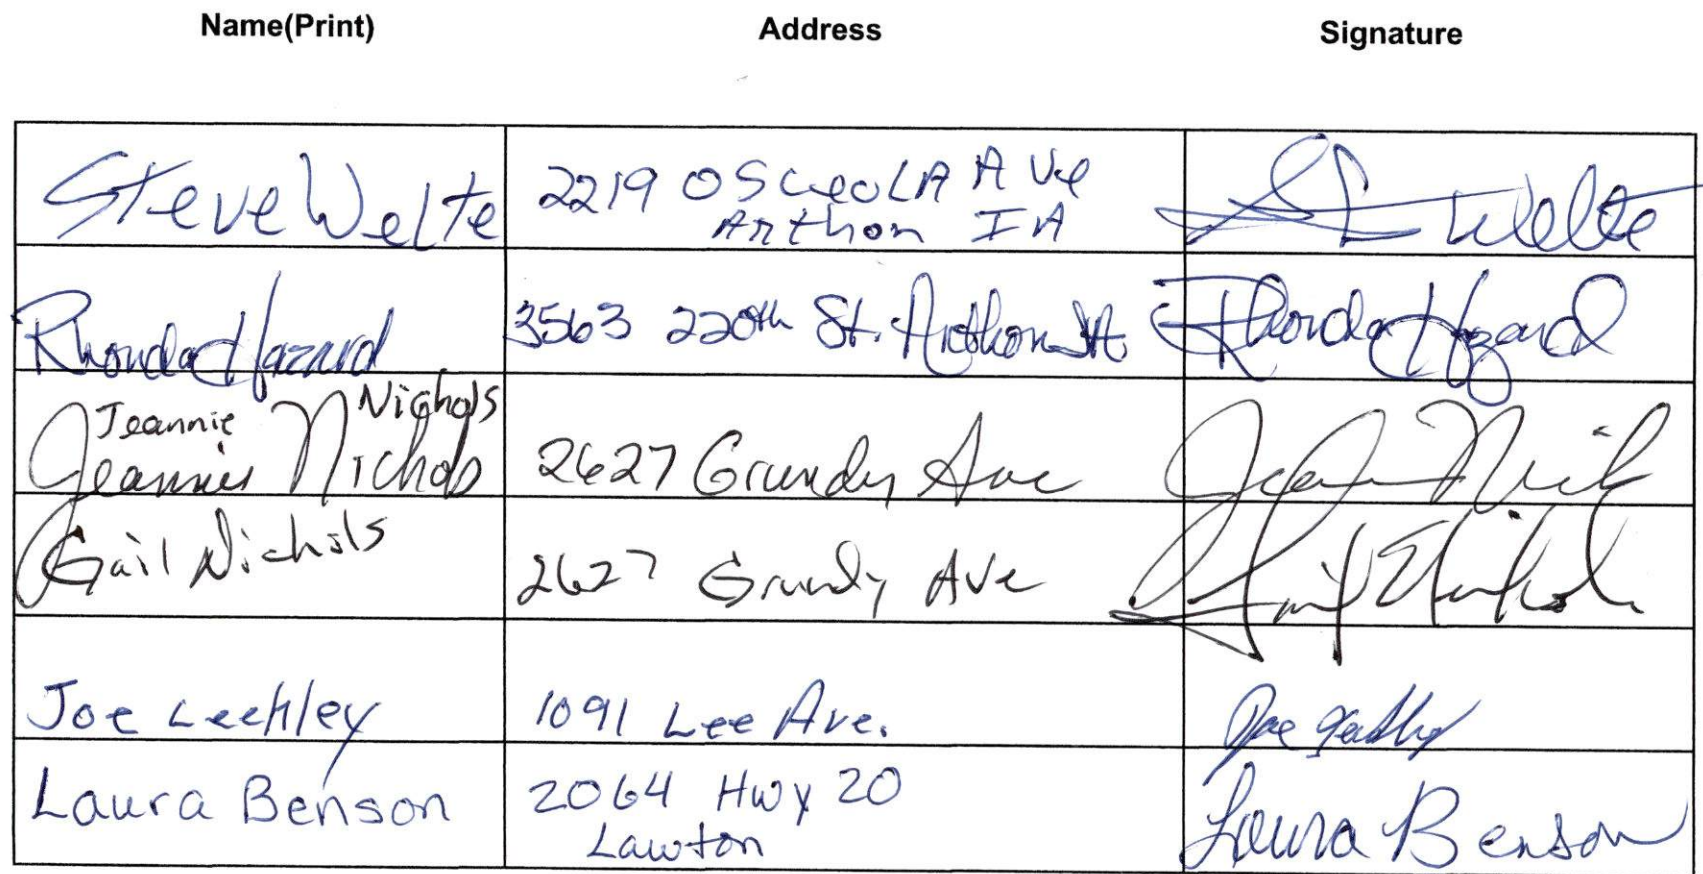 Name(Print) Address Signature
Steve Welte 2219 OSceoLA AVe Anthon IA S Welte
Rhonda Hazard 3563 220th St. Anthon IA Rhonda Hazard
Jeannie Nichols
Jeannie Nichols 2627 Grundy Ave
Gail Nichols 2627 Grundy Ave Gail Nichols
Joe Leekley 1091 Lee Ave. Joe Leekley
Laura Benson 2064 Hwy 20 Laura Benson
Lawton